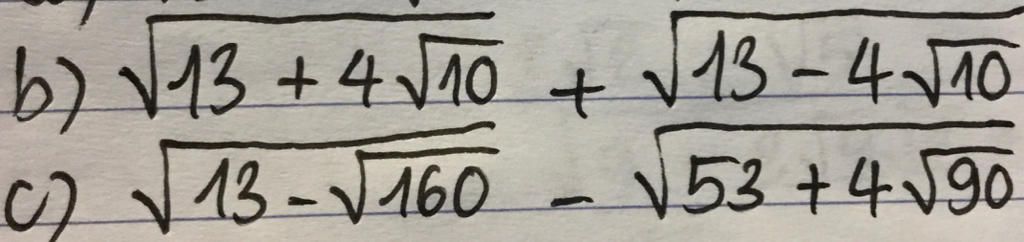 b) √(13 + 4√10) + √(13 - 4√10)
c) √(13 - √160) - √(53 + 4√90)